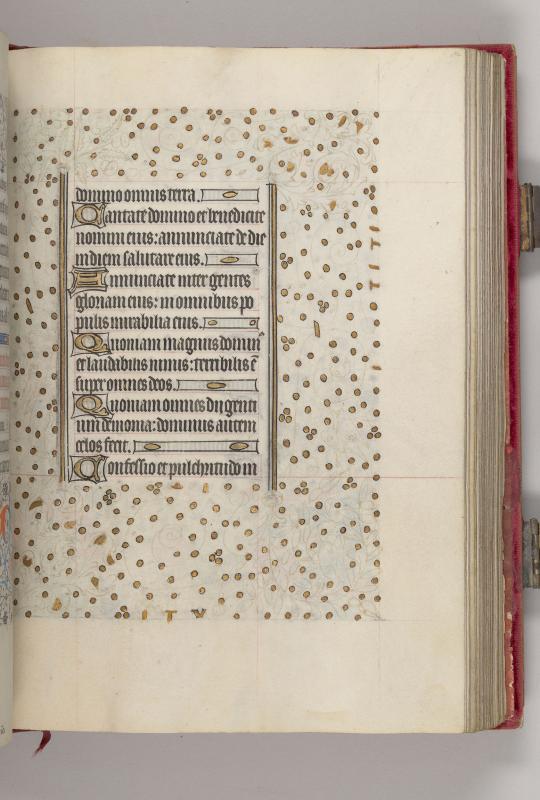 domino omnis terra.
Cantate domino et benedicite
nomini eius: annunciate de die
in diem salutare eius.
Annunciate inter gentes
gloriam eius: in omnibus po
pulis mirabilia eius.
Quoniam magnus domin9
et laudabilis nimis: terribilis ē
super omnes deos.
Quoniam omnes dii genti
um demonia: dominus autem
celos fecit.
Confessio et pulchritudo in